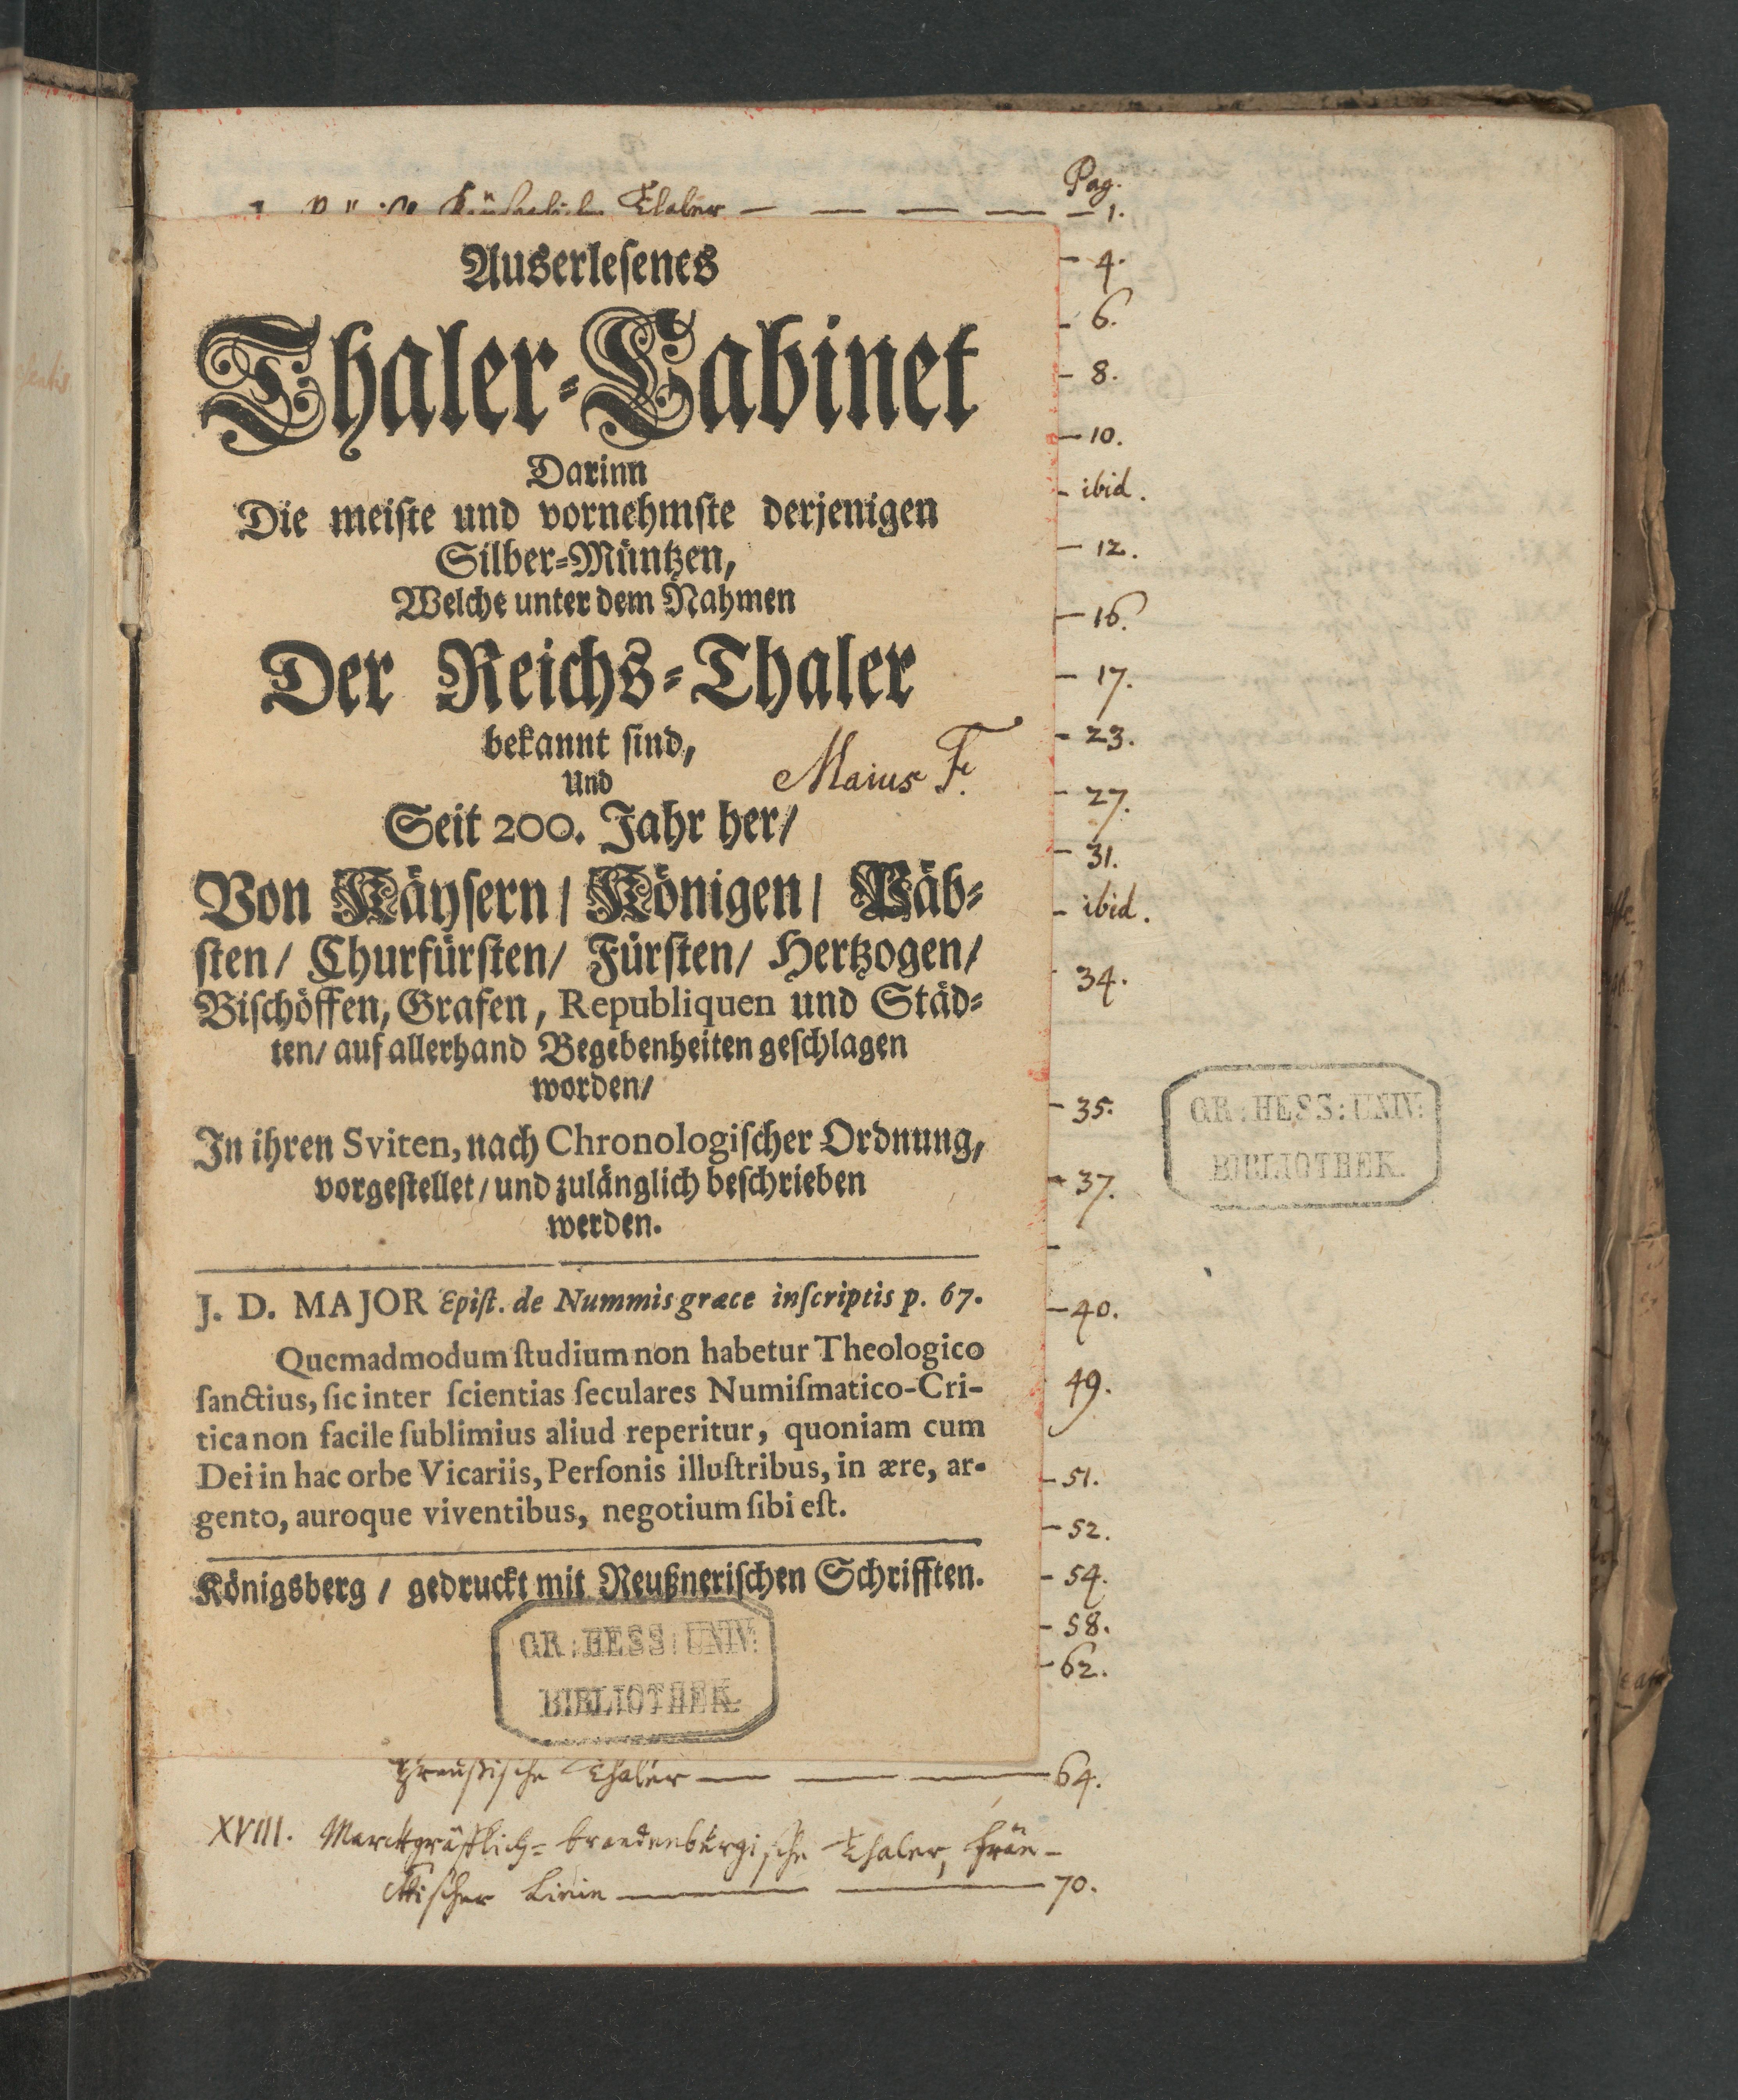 Pag.
Thaler — — — — 1.
Auserleſenes
Thaler-Cabinet
Darinn
Die meiſte und vornehmſte derjenigen
Silber-Müntzen,
Welche unter dem Nahmen
Der Reichs-Thaler
bekannt ſind,
Und
Maius F.
Seit 200. Jahr her/
Von Käyſern/ Königen/ Päb-
ſten/ Churfürſten/ Fürſten/ Hertzogen/
Biſchöffen, Grafen, Republiquen und Städ-
ten/ auf allerhand Begebenheiten geſchlagen
worden/
In ihren Sviten, nach Chronologiſcher Ordnung,
vorgeſtellet/ und zulänglich beſchrieben
werden.
J. D. MAJOR Epiſt. de Nummis græce inſcriptis p. 67.
Quemadmodum ſtudium non habetur Theologico
ſanctius, ſic inter ſcientias ſeculares Numiſmatico-Cri-
tica non facile ſublimius aliud reperitur, quoniam cum
Dei in hac orbe Vicariis, Perſonis illuſtribus, in ære, ar-
gento, auroque viventibus, negotium ſibi eſt.
Königsberg / gedruckt mit Reußneriſchen Schrifften.
GR: HESS: UNIV:
BIBLIOTHEK.
- 4.
- 6.
- 8.
- 10.
- ibid.
- 12.
- 16.
- 17.
- 23.
- 27.
- 31.
- ibid.
34.
- 35.
- 37.
- 40.
49.
- 51.
- 52.
- 54.
- 58.
- 62.
GR: HESS: UNIV:
BIBLIOTHEK.
Preußische Thaler — — — 64.
XVIII. Marckgräfflich-brandenburgische Thaler, Frän-
ckischer Linie — — 70.